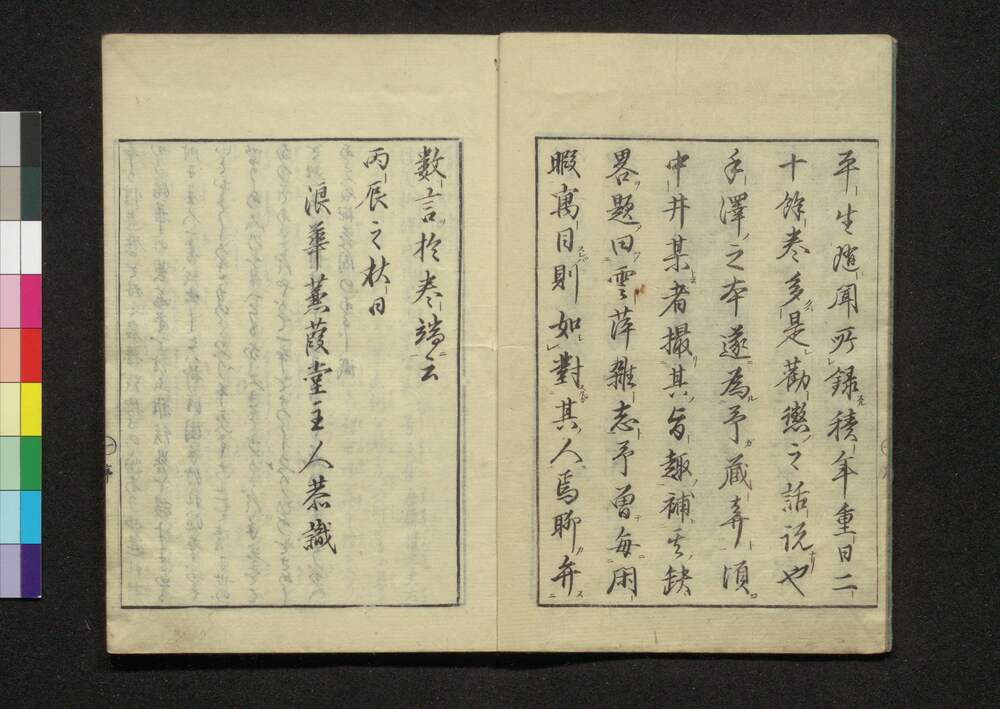 平生随聞所録積年重日二
十餘巻多是勧懲之話説也
手澤之本遂為予蔵弆頃
中井某者撮其旨趣補其缺
畧題曰雲萍雜志予曽毎閑
暇寓目則如對其人焉聊弁
数言於巻端云
丙辰之秋日
浪華蒹葭堂主人恭識